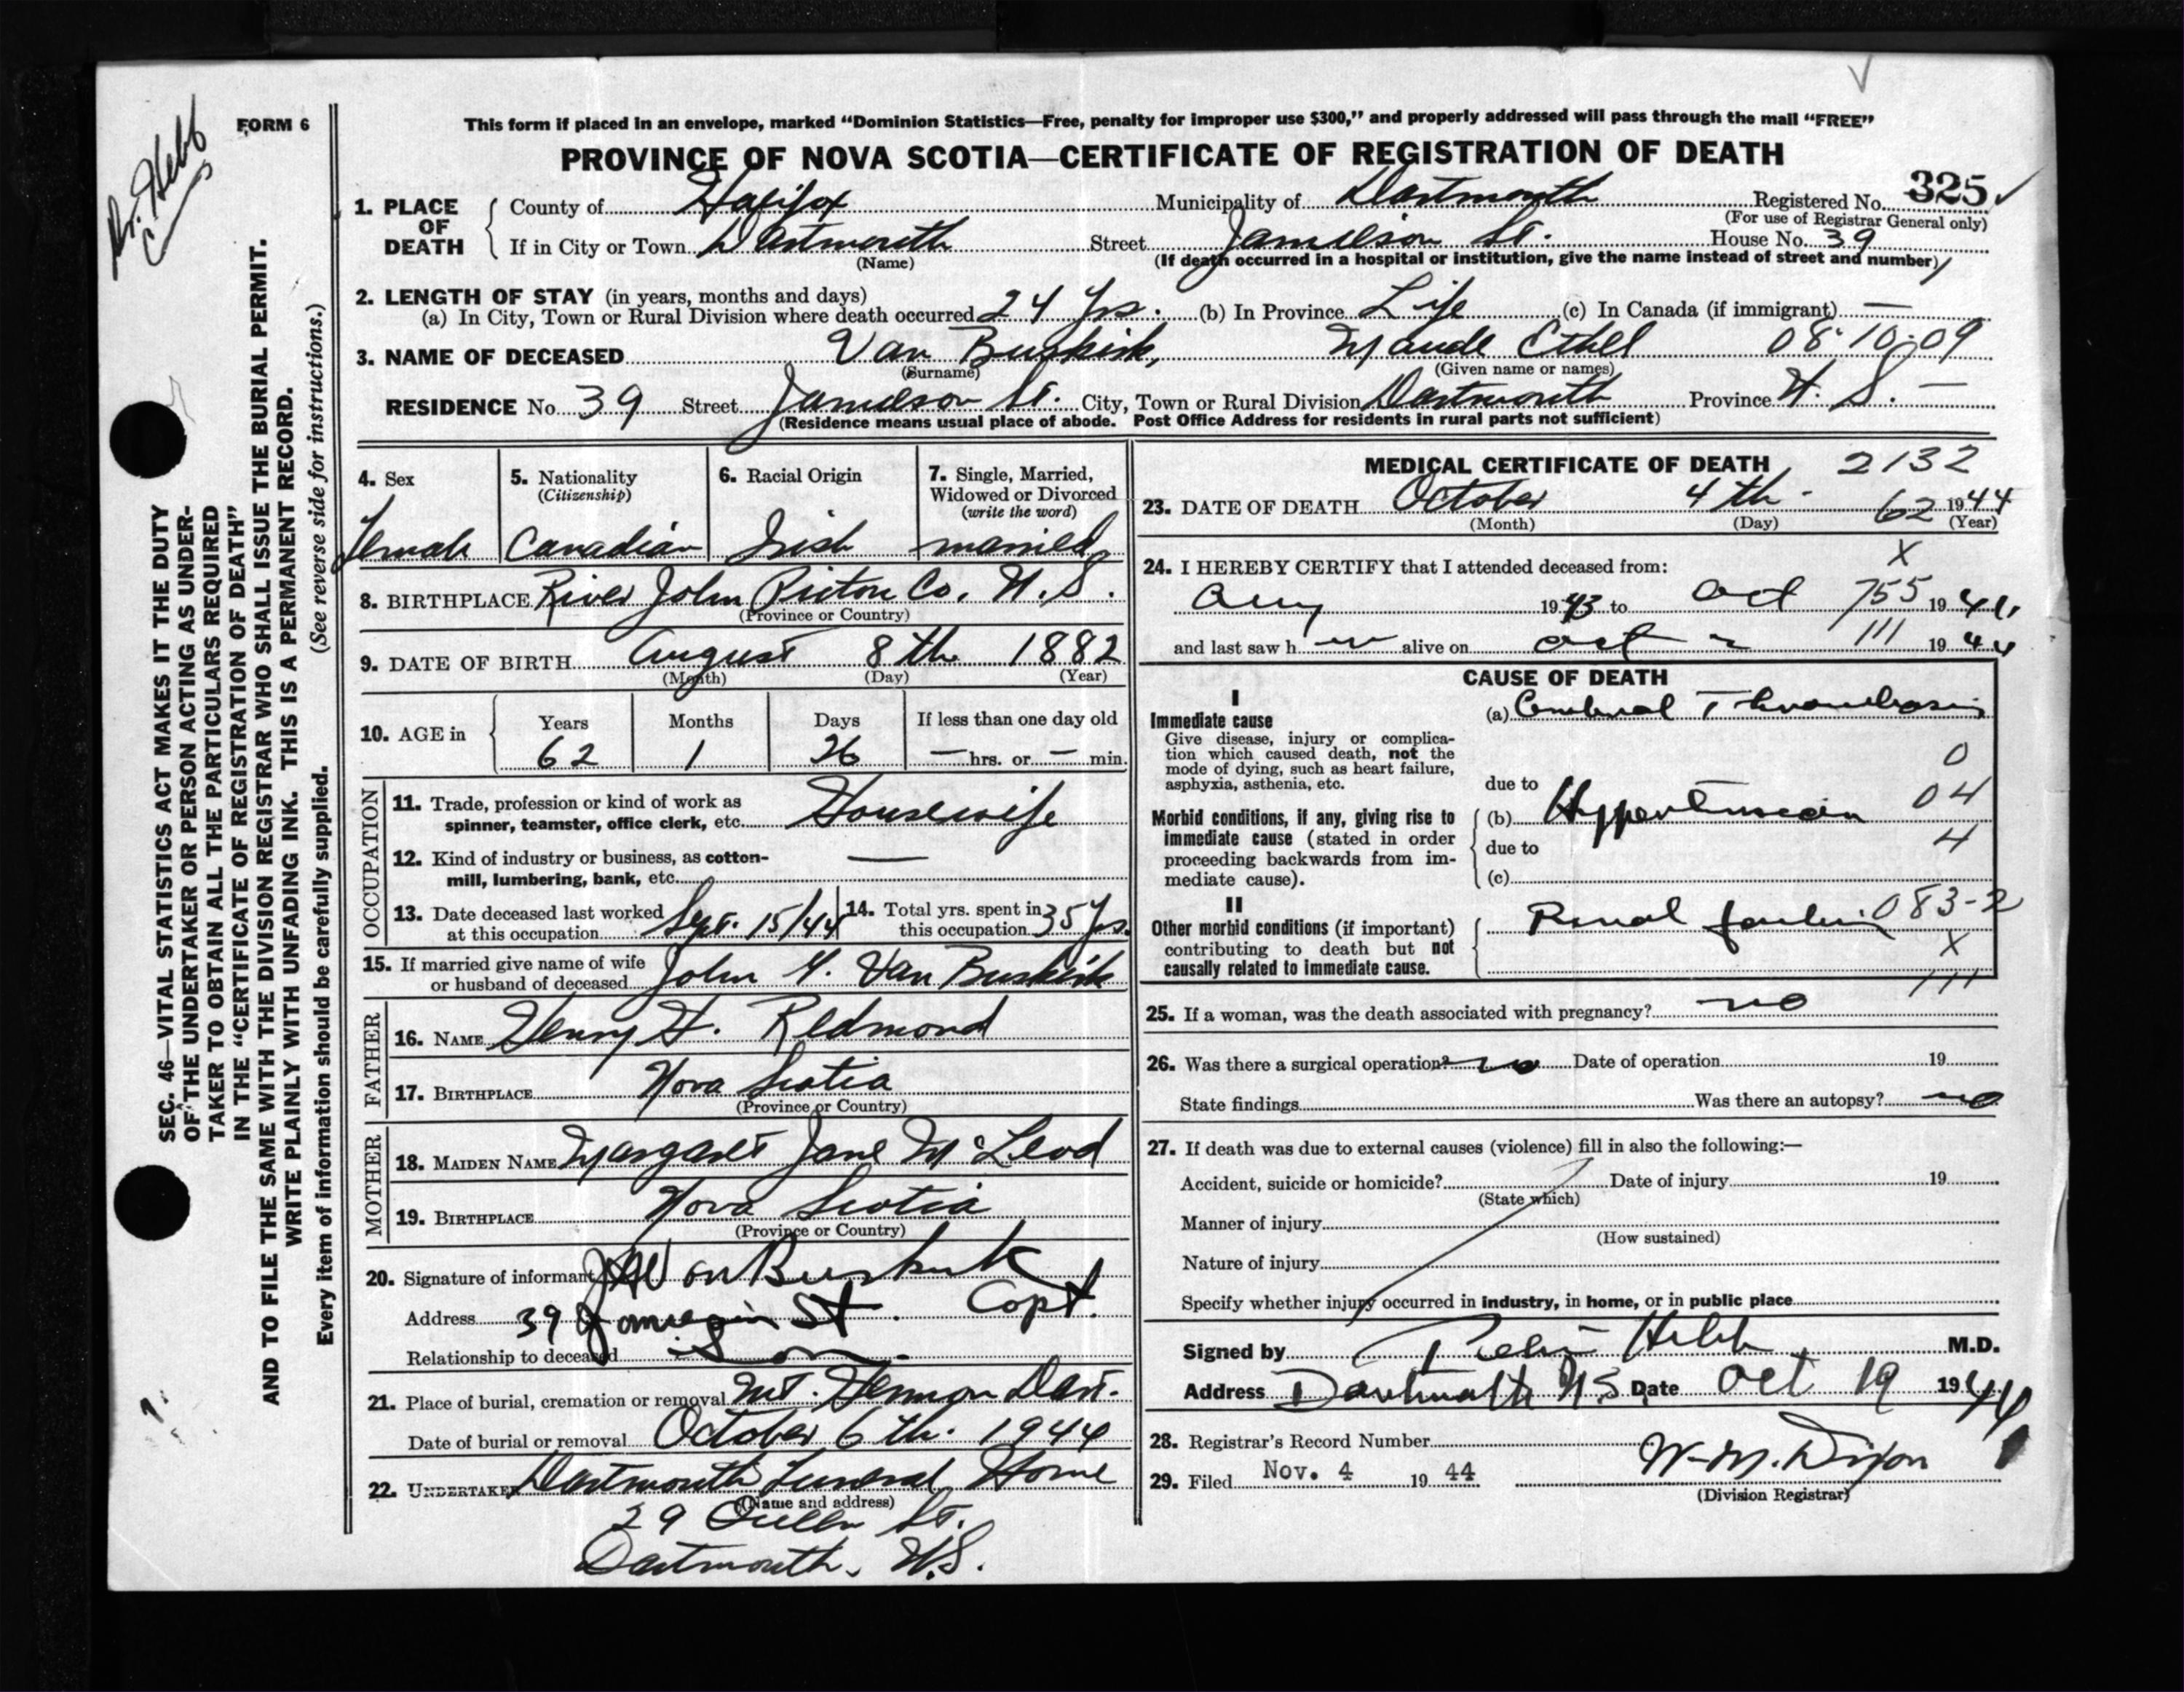 Dr. Hebb
FORM 6
This form if placed in an envelope, marked “Dominion Statistics—Free, penalty for improper use $300,” and properly addressed will pass through the mail “FREE”
PROVINCE OF NOVA SCOTIA—CERTIFICATE OF REGISTRATION OF DEATH
325
1. PLACE OF DEATH
County of Halifax Municipality of Dartmouth Registered No.
(For use of Registrar General only)
If in City or Town Dartmouth Street Jamieson St. House No. 39
(Name) (If death occurred in a hospital or institution, give the name instead of street and number)
2. LENGTH OF STAY (in years, months and days)
(a) In City, Town or Rural Division where death occurred 24 Yrs. (b) In Province Life (c) In Canada (if immigrant) —
3. NAME OF DECEASED Van Buskirk, Maude Ethel 08-10-09
(Surname) (Given name or names)
RESIDENCE No. 39 Street Jamieson St. City, Town or Rural Division Dartmouth Province N. S. —
(Residence means usual place of abode. Post Office Address for residents in rural parts not sufficient)
SEC. 46—VITAL STATISTICS ACT MAKES IT THE DUTY
OF THE UNDERTAKER OR PERSON ACTING AS UNDER-
TAKER TO OBTAIN ALL THE PARTICULARS REQUIRED
IN THE “CERTIFICATE OF REGISTRATION OF DEATH”
AND TO FILE THE SAME WITH THE DIVISION REGISTRAR WHO SHALL ISSUE THE BURIAL PERMIT.
WRITE PLAINLY WITH UNFADING INK. THIS IS A PERMANENT RECORD.
Every item of information should be carefully supplied. (See reverse side for instructions.)
4. Sex
Female
5. Nationality
(Citizenship)
Canadian
6. Racial Origin
Irish
7. Single, Married,
Widowed or Divorced
(write the word)
married
8. BIRTHPLACE River John Pictou Co. N.S.
(Province or Country)
9. DATE OF BIRTH August 8th 1882
(Month) (Day) (Year)
10. AGE in
Years Months Days If less than one day old
62 1 26 — hrs. or — min.
OCCUPATION
11. Trade, profession or kind of work as
spinner, teamster, office clerk, etc. Housewife
12. Kind of industry or business, as cotton-
mill, lumbering, bank, etc. —
13. Date deceased last worked
at this occupation Sept. 15/44
14. Total yrs. spent in
this occupation 35 Yrs.
15. If married give name of wife
or husband of deceased John Y. Van Buskirk
FATHER
16. NAME Henry H. Redmond
17. BIRTHPLACE Nova Scotia
(Province or Country)
MOTHER
18. MAIDEN NAME Margaret Jane McLeod
19. BIRTHPLACE Nova Scotia
(Province or Country)
20. Signature of informant Van Buskirk
Capt.
Address 39 Jamieson St.
Relationship to deceased Son.
21. Place of burial, cremation or removal Mt. Hermon Dart.
Date of burial or removal October 6th. 1944
22. UNDERTAKER Dartmouth Funeral Home
(Name and address)
29 Queen St.
Dartmouth, N.S.
MEDICAL CERTIFICATE OF DEATH 2132
23. DATE OF DEATH October 4th - 62 1944
(Month) (Day) (Year)
X
24. I HEREBY CERTIFY that I attended deceased from:
Aug 1943 to Oct 755 1944
and last saw h er alive on Oct 2 111 1944
CAUSE OF DEATH
I
Immediate cause
Give disease, injury or complica-
tion which caused death, not the
mode of dying, such as heart failure,
asphyxia, asthenia, etc.
(a) Cerebral Thrombosis
0
due to
04
Morbid conditions, if any, giving rise to
immediate cause (stated in order
proceeding backwards from im-
mediate cause).
(b) Hypertension
due to
4
(c)
II
Other morbid conditions (if important)
contributing to death but not
causally related to immediate cause.
Renal failure 083-2
X
111
25. If a woman, was the death associated with pregnancy? no
26. Was there a surgical operation? no Date of operation 19
State findings Was there an autopsy? no
27. If death was due to external causes (violence) fill in also the following:—
Accident, suicide or homicide? Date of injury 19
(State which)
Manner of injury
(How sustained)
Nature of injury
Specify whether injury occurred in industry, in home, or in public place
Signed by Hebb M.D.
Address Dartmouth N.S. Date Oct 19 1944
28. Registrar’s Record Number
29. Filed Nov. 4 19 44 W. M. Dixon
(Division Registrar)